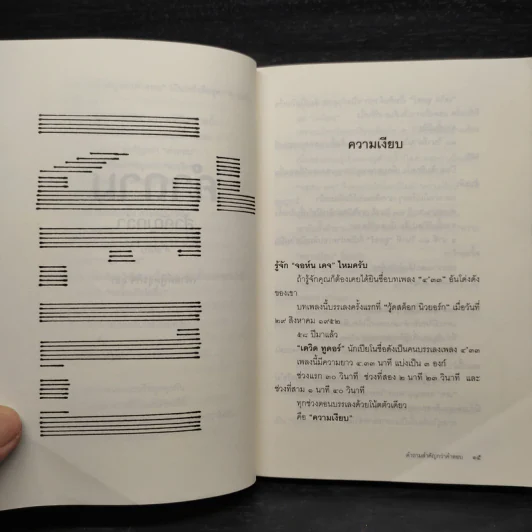 คำถาม
สำคัญกว่า
ความเงียบ
รู้จัก "จอห์น เคจ" ไหมครับ
ถ้ารู้จักคุณก็ต้องเคยได้ยินชื่อบทเพลง "๔'๓๓" อันโด่งดัง
ของเขา
บทเพลงนี้บรรเลงครั้งแรกที่ "วู้ดสต็อก นิวยอร์ก" เมื่อวันที่
๒๙ สิงหาคม ๑๙๕๒
๕๘ ปีมาแล้ว
"เดวิด ทูดอร์" นักเปียโนชื่อดังเป็นคนบรรเลงเพลง ๔'๓๓
เพลงนี้มีความยาว ๔.๓๓ นาที แบ่งเป็น ๓ องก์
ช่วงแรก ๓๐ วินาที ช่วงที่สอง ๒ นาที ๒๓ วินาที และ
ช่วงที่สาม ๑ นาที ๔๐ วินาที
ทุกช่วงตอนบรรเลงด้วยโน้ตตัวเดียว
คือ "ความเงียบ"
คำถามสำคัญกว่าคำตอบ ๑๕